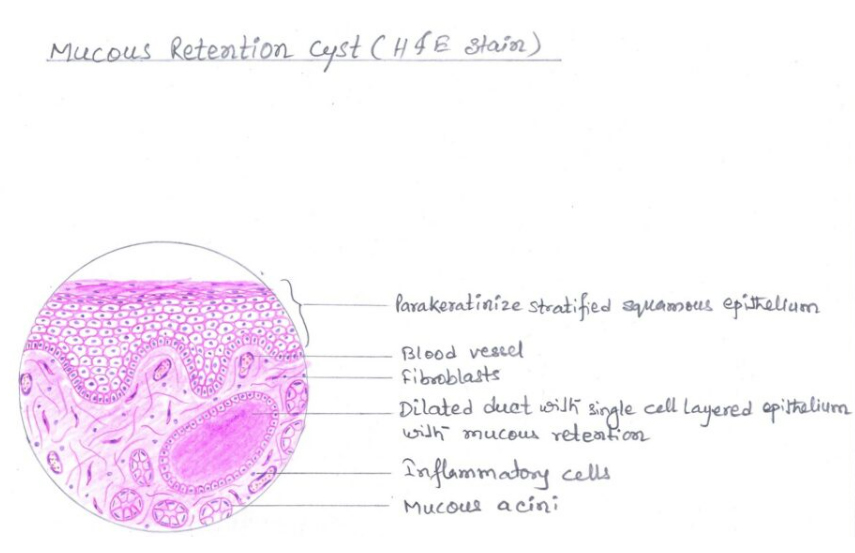 Mucous Retention Cyst (H & E Stain)
Parakeratinize stratified squamous epithelium
Blood vessel
Fibroblasts
Dilated duct with single cell layered epithelium
with mucous retention
Inflammatory cells
Mucous acini